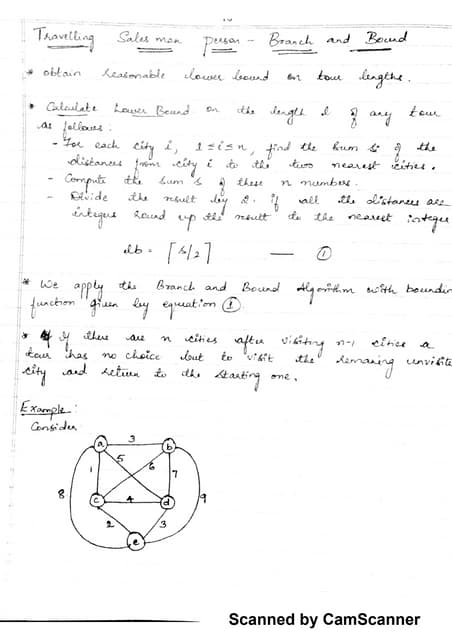 Travelling Sales man person - Branch and Bound
* obtain reasonable lower bound on tour lengths.
• Calculate Lower Bound on the length l of any tour
as follows:
- For each city i, 1≤i≤n, find the sum si of the
distances from city i to the two nearest cities.
- Compute the sum s of these n numbers.
- Divide the result by 2. if all the distances are
integers round up the result to the nearest integer
lb = ⌈s/2⌉ — ①
* We apply the Branch and Bound Algorithm with boundin
function given by equation ①.
* If there are n cities after visiting n-1 cities a
tour has no choice but to visit the remaning unvisite
city and return to the starting one.
Example:
Consider
3
a b
5 6
1 7
8 c 4 d 9
2 3
e
Scanned by CamScanner